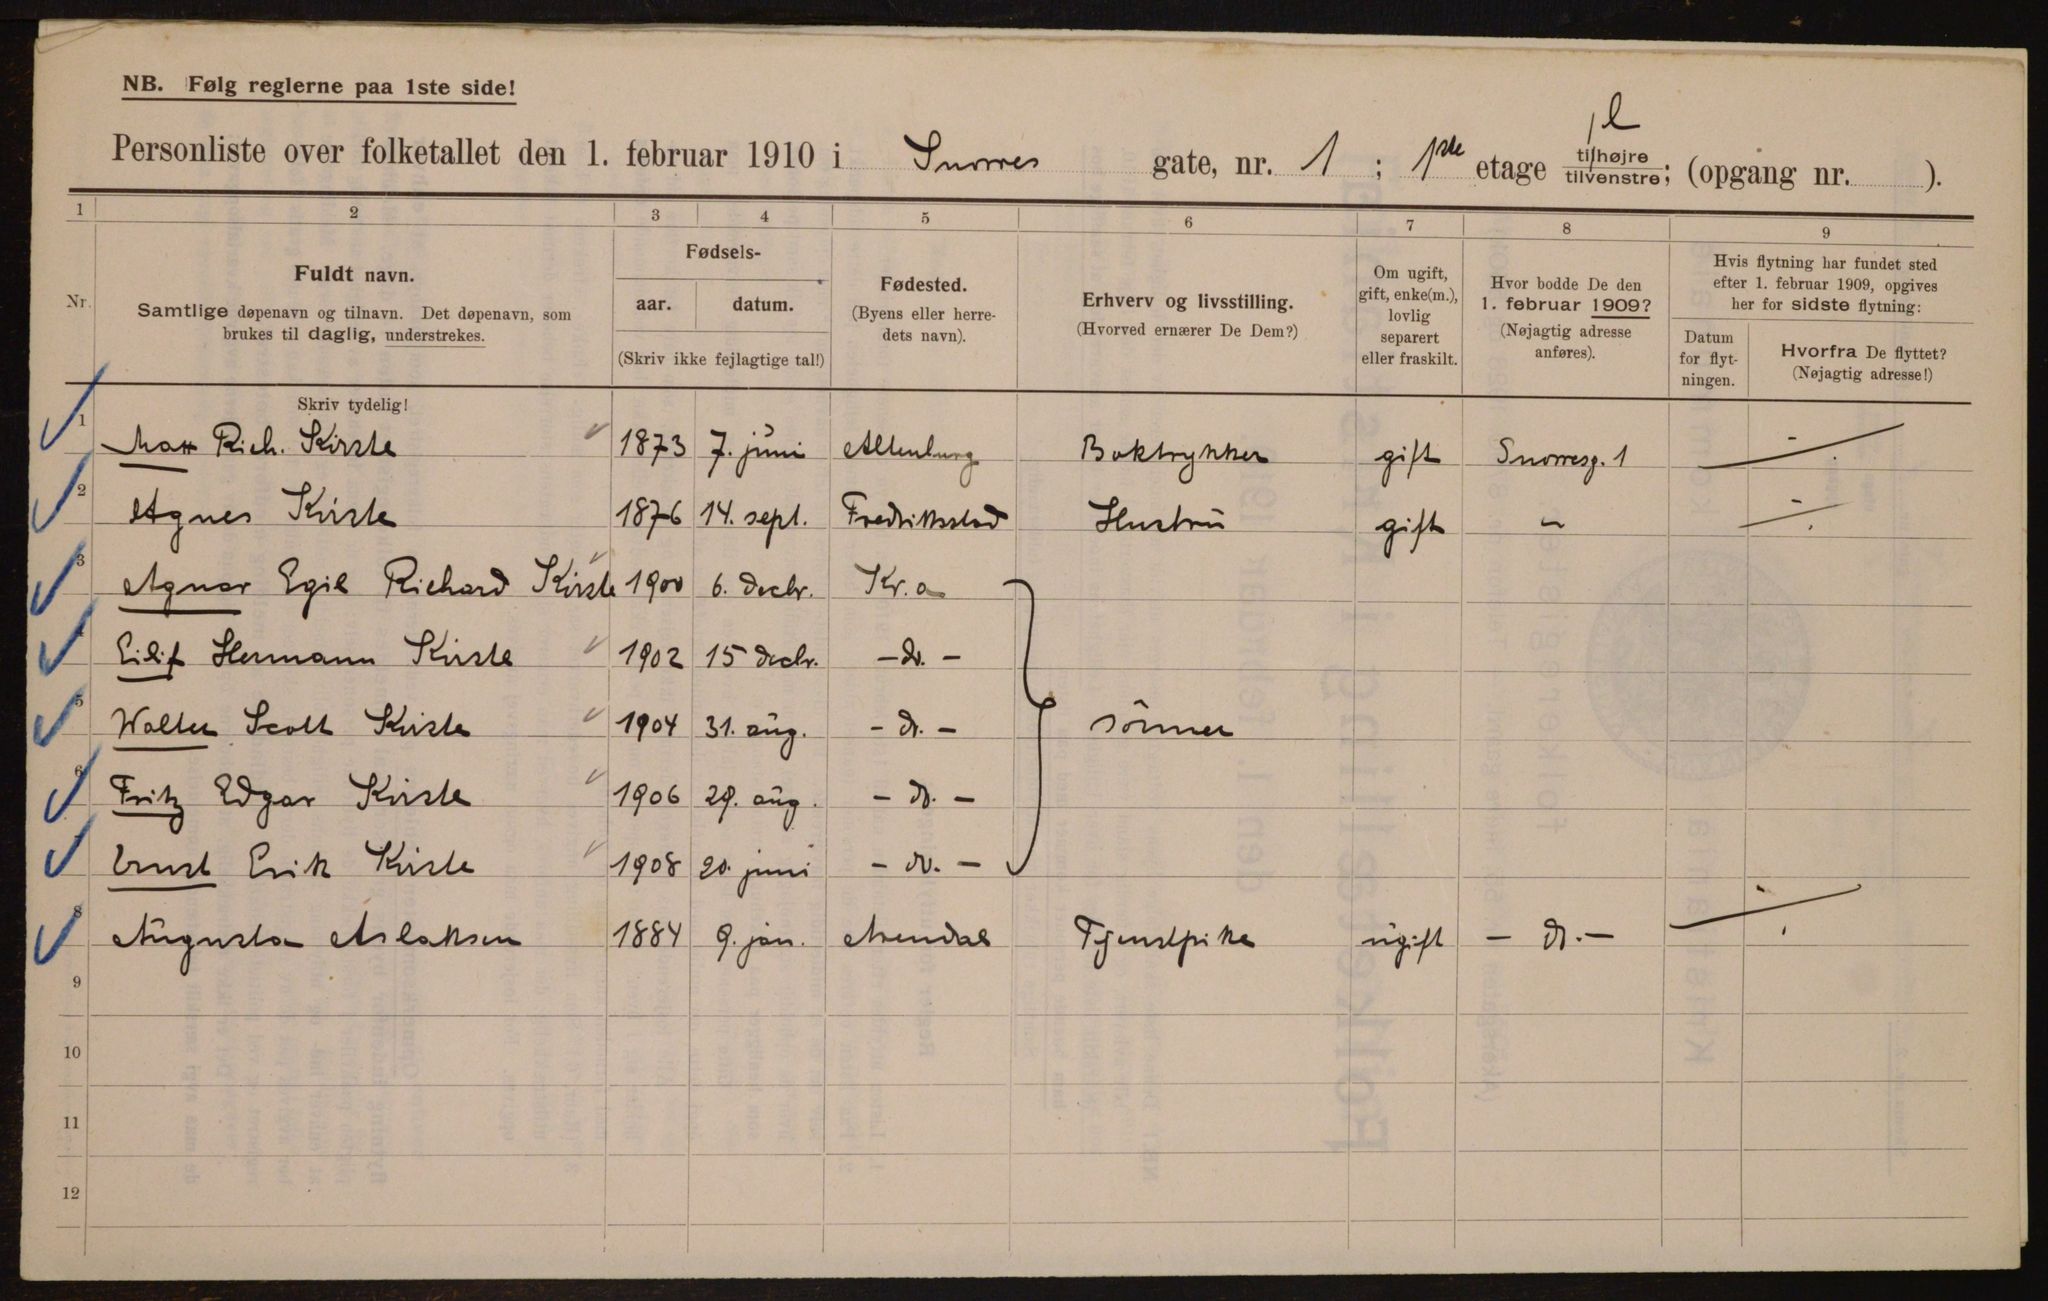 NB. Følg reglerne paa 1ste side!
Personliste over folketallet den 1. februar 1910 i Snorres gate, nr. 1 ; 1ste etage tilhøjre tilvenstre; (opgang nr. ).
1 2 3 4 5 6 7 8 9
Nr.
Fuldt navn.
Samtlige døpenavn og tilnavn. Det døpenavn, som
brukes til daglig, understrekes.
Fødsels-
aar. datum.
(Skriv ikke fejlagtige tal!)
Fødested.
(Byens eller herre-
dets navn).
Erhverv og livsstilling.
(Hvorved ernærer De Dem?)
Om ugift,
gift, enke(m.),
lovlig
separert
eller fraskilt.
Hvor bodde De den
1. februar 1909?
(Nøjagtig adresse
anføres).
Hvis flytning har fundet sted
efter 1. februar 1909, opgives
her for sidste flytning:
Datum
for flyt-
ningen.
Hvorfra De flyttet?
(Nøjagtig adresse!)
Skriv tydelig!
1 Max Rich. Kirste 1873 7. juni Altenburg Boktrykker gift Snorresg. 1
2 Agnes Kirste 1876 14. sept. Fredriksstad Hustru gift "
3 Agnar Egil Richard Kirste 1900 6. decbr. Kr.a
4 Eilif Hermann Kirste 1902 15 decbr. - do. -
5 Walter Scott Kirste 1904 31. aug. - do. - sønner
6 Fritz Edgar Kirste 1906 29. aug. - do. -
7 Ernst Erik Kirste 1908 20. juni - do. -
8 Augusta Aslaksen 1884 9. jan. Arendal Tjenstpike ugift - do. -
9
10
11
12